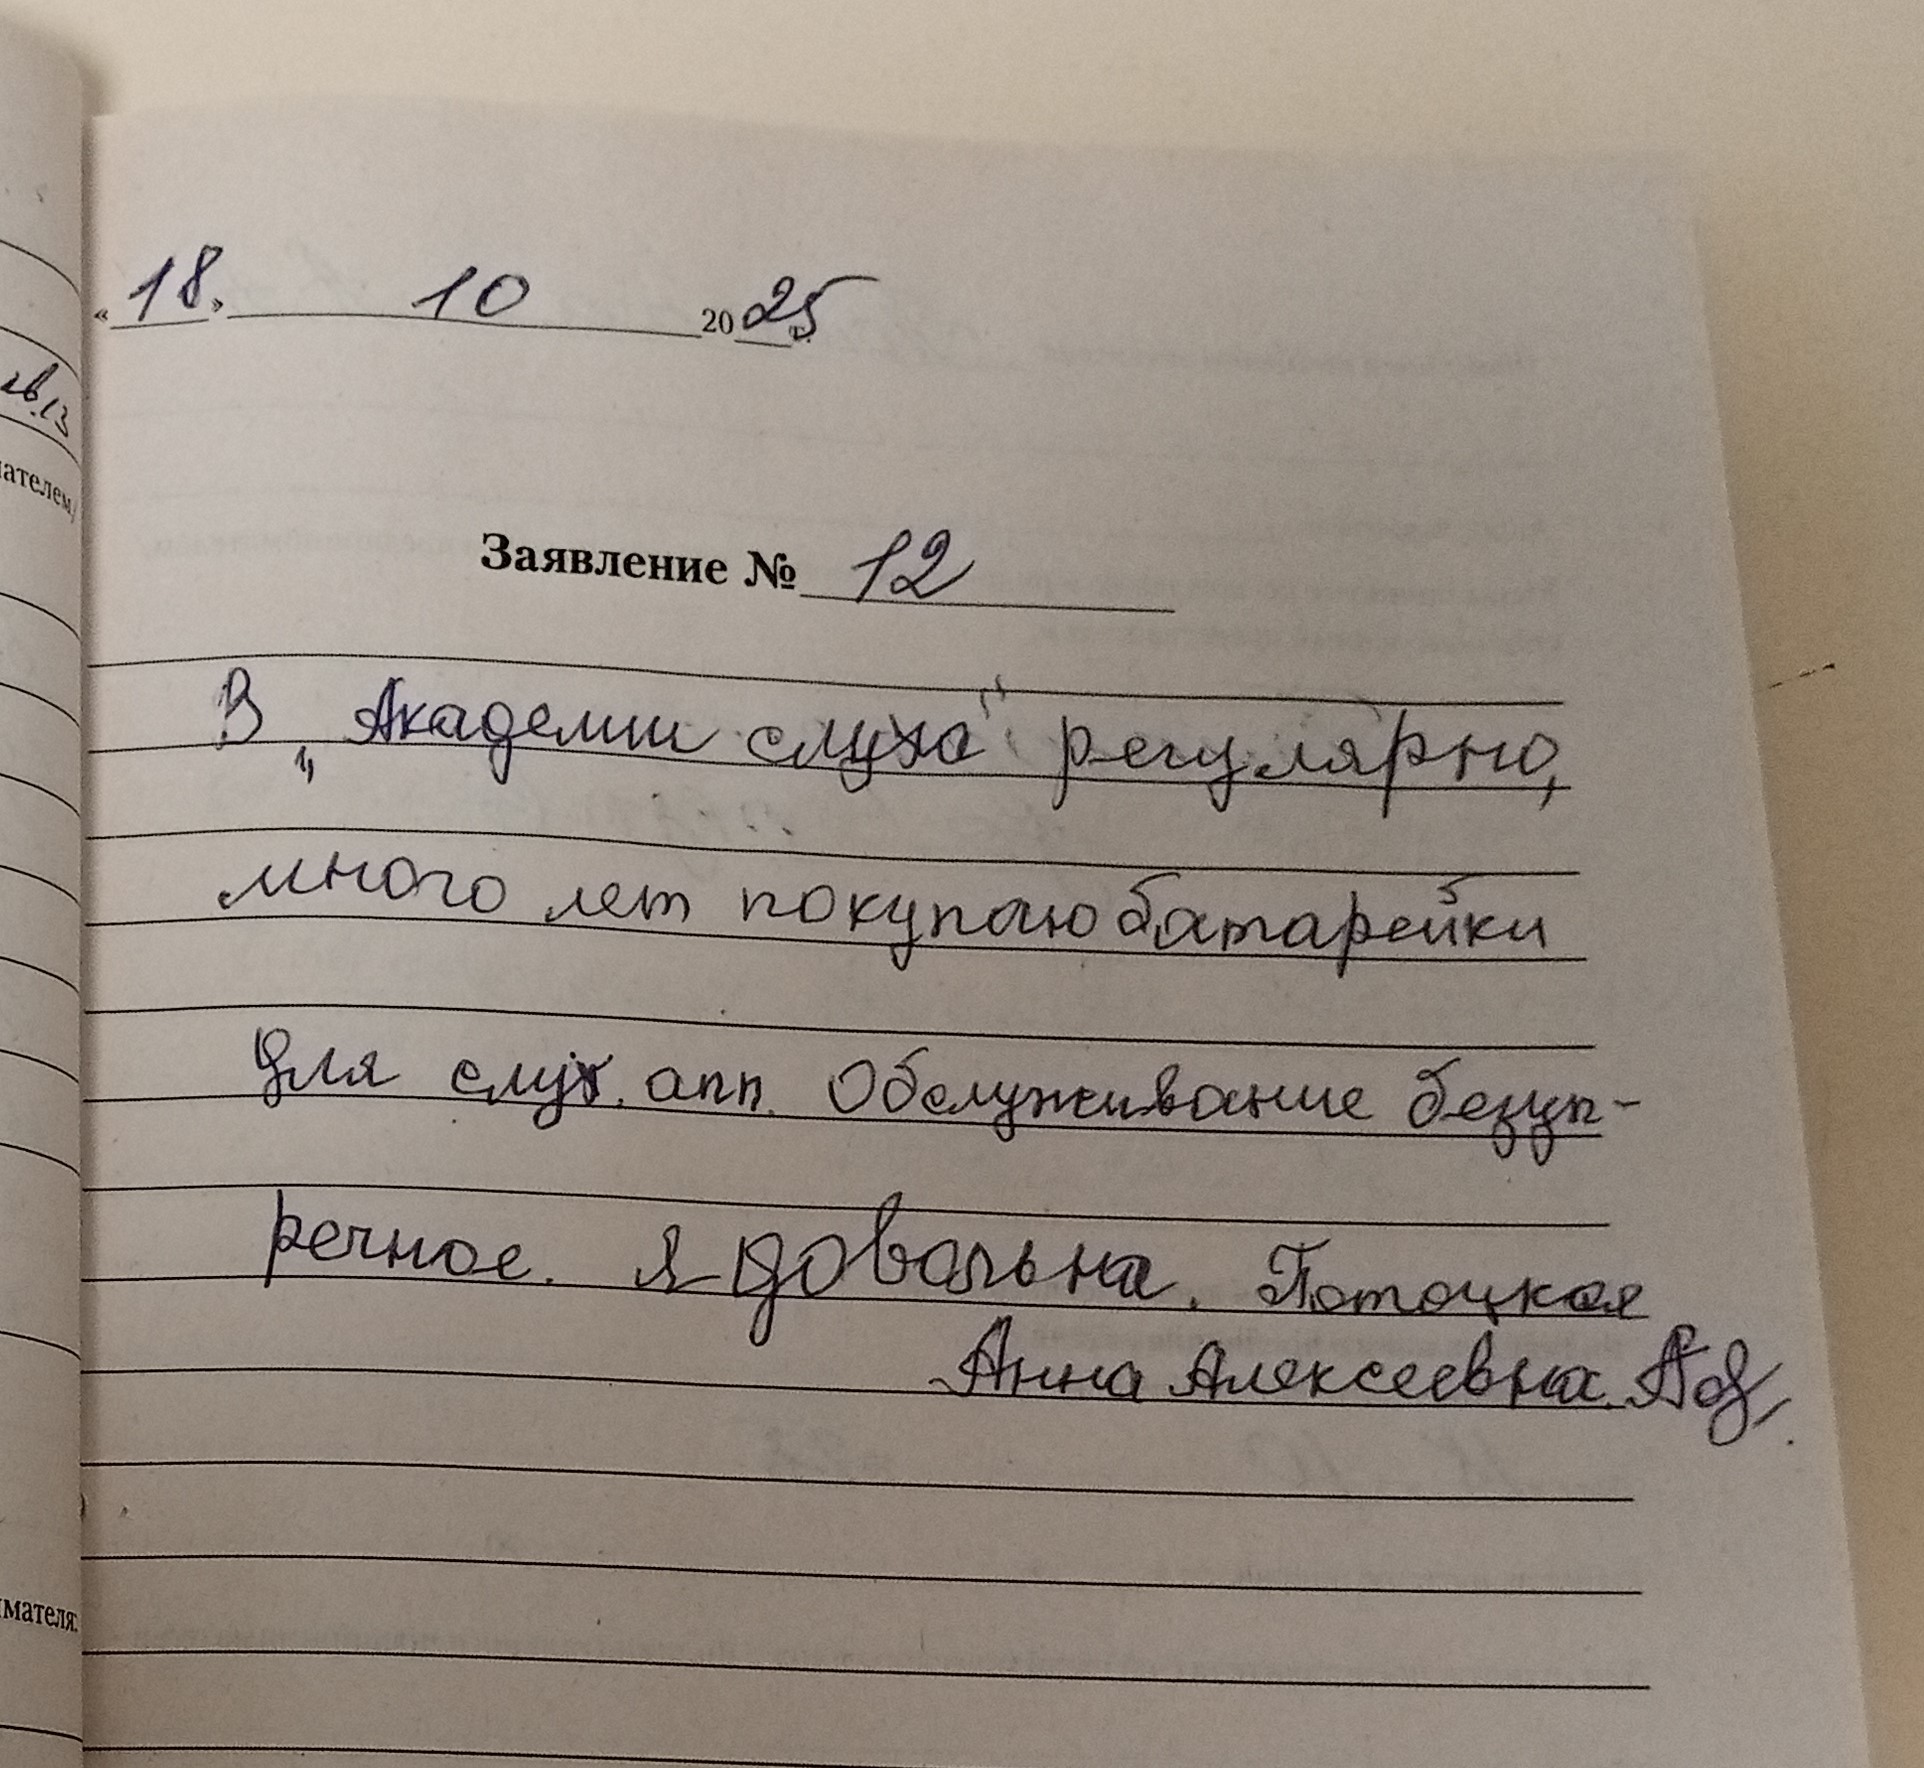 «18» 10 2025 г.
кв.13
ателем/
Заявление № 12
В „Академии слуха" регулярно,
много лет покупаю батарейки
для слух. апп. Обслуживание безуп-
речное. Я довольна. Потоцкая
Анна Алексеевна.
имателя: